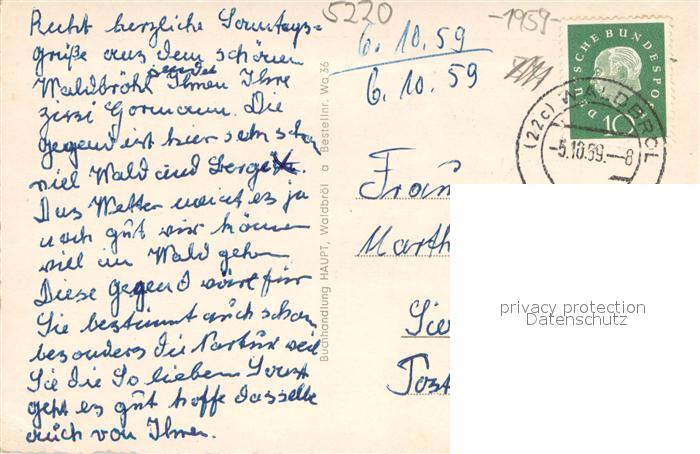 Recht herzliche Sonntags=
grüße aus dem schönen
Waldbröhl sendet Ihnen Ihre
Gormann. Die
Gegend ist hier sehr schön
viel Wald und Berge.
Das Wetter macht es ja
noch gut wir können
viell im Wald gehen
Diese Gegend wäre für
Sie bestimmt auch schön
besonders die Nartur weil
Sie die So lieben Sonst
geht es gut hoffe dasselbe
auch von Ihnen.
Buchhandlung HAUPT, Waldbröl a Bestellnr. Wa 36
5220
6. 10. 59
6. 10. 59
-1959-
DEUTSCHE BUNDESPO
10
(22c) WALDBRÖL
-5.10.59.--8
Frau
Marth
Sie
Post
privacy protection
Datenschutz